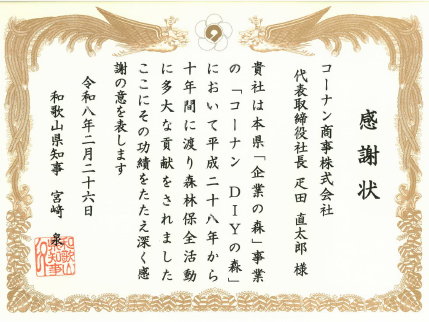 感謝状
コーナン商事株式会社
代表取締役社長 疋田 直太郎 様
貴社は本県「企業の森」事業
の「コーナン DIYの森」
において平成二十八年から
十年間に渡り森林保全活動
に多大な貢献をされました
ここにその功績をたたえ深く感
謝の意を表します
令和八年二月二十六日
和歌山県知事 宮﨑 泉
和歌山
県知事
印